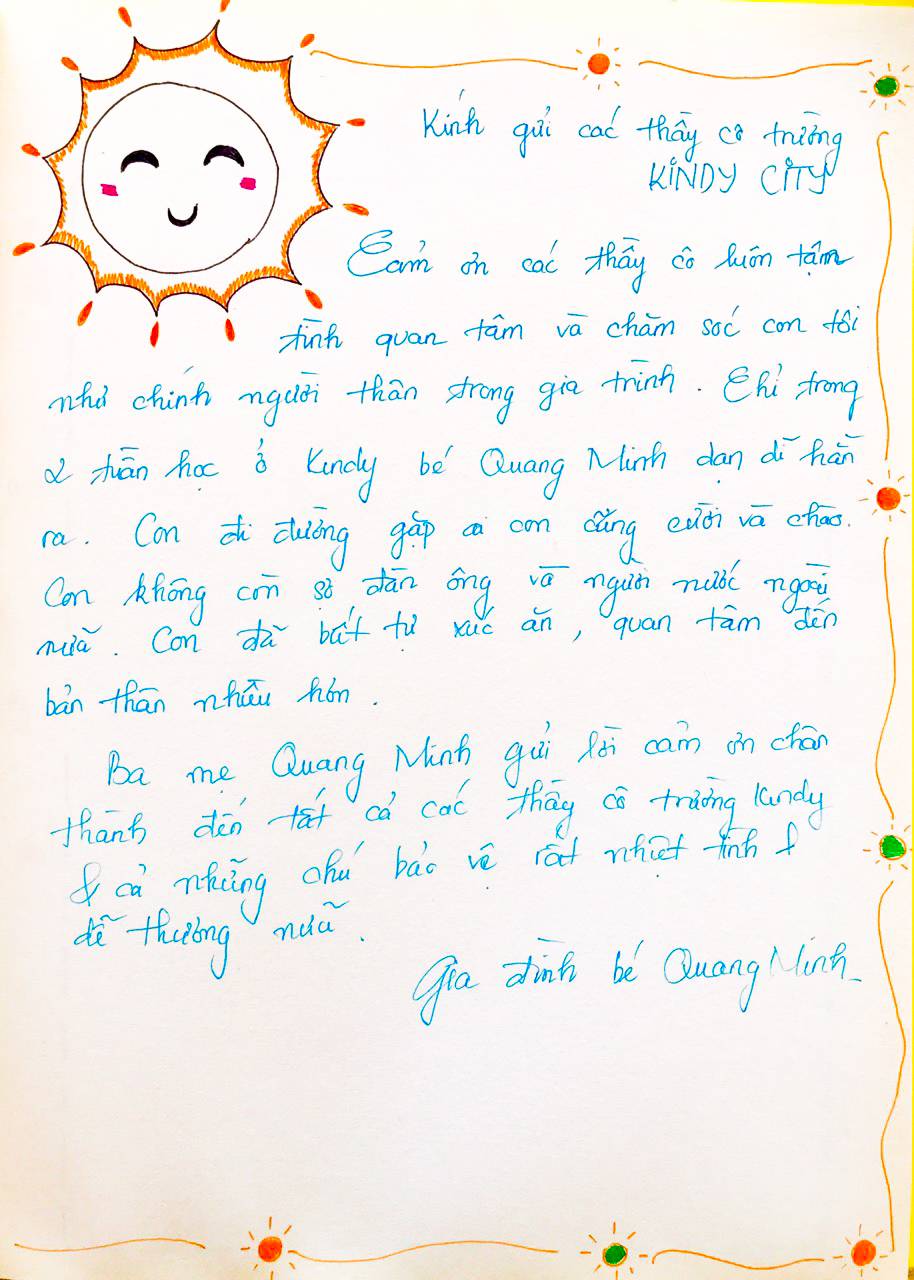 Kính gửi các thầy cô trường
KINDY CITY
Cảm ơn các thầy cô luôn tậm
tình quan tâm và chăm sóc con tôi
như chính người thân trong gia trình. Chỉ trong
2 tuần học ở Kindy bé Quang Minh dạn dĩ hẳn
ra. Con đi đường gặp ai con cũng cười và chào.
Con không còn sợ đàn ông và người nước ngoài
nữa. Con đã bắt tự xúc ăn, quan tâm đến
bản thân nhiều hơn.
Ba mẹ Quang Minh gửi lời cảm ơn chân
thành đến tất cả các thầy cô trường Kindy
& cả những chú bảo vệ rất nhiệt tình &
dễ thương nữa.
Gia đình bé Quang Minh